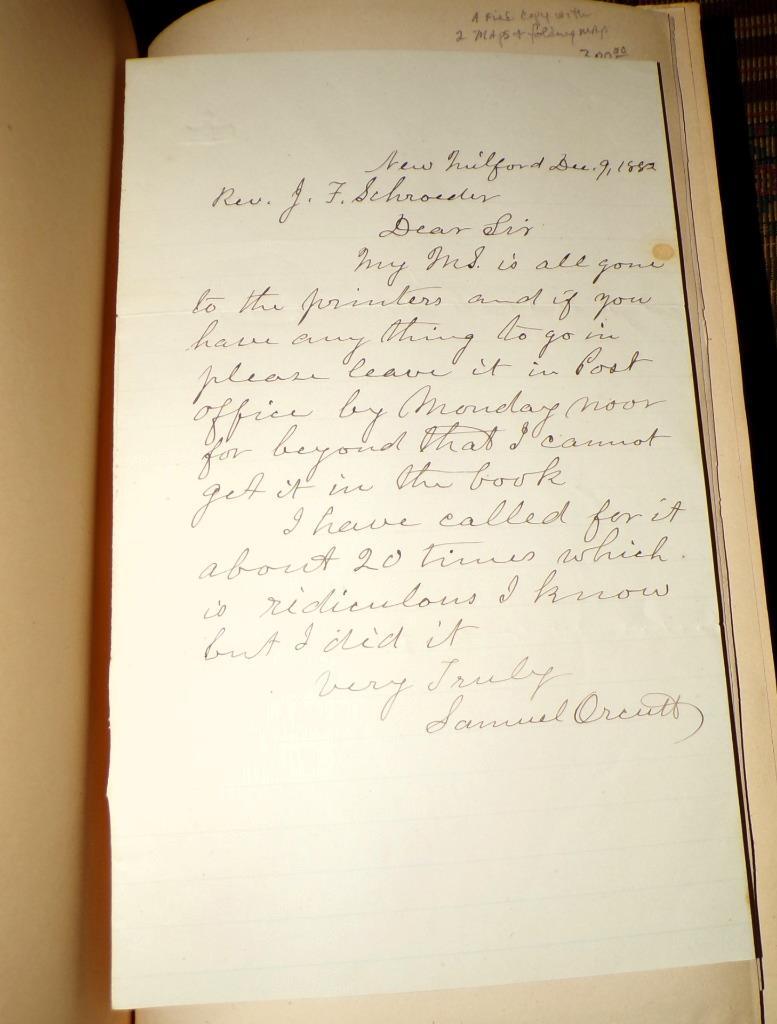 A Fine Copy with
2 MAPS & folding map
200.00
New Milford Dec. 9, 1882
Rev. J. F. Schroeder
Dear Sir
My MS. is all gone
to the printers and if you
have any thing to go in
please leave it in Post
office by Monday noon
for beyond that I cannot
get it in the book
I have called for it
about 20 times which
is ridiculous I know
but I did it
Very Truly
Samuel Orcutt